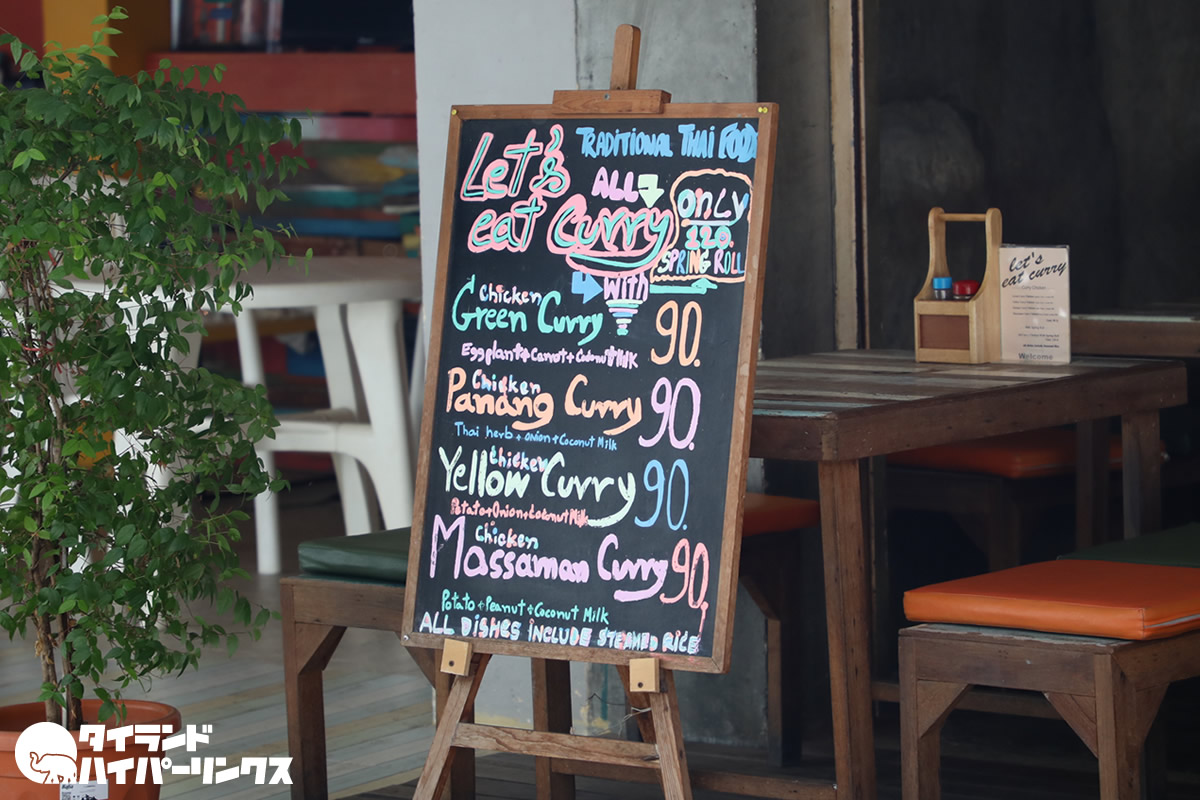 TRADITIONAL THAI FOOD
Let's
eat Curry
ALL
ONLY
120.
SPRING ROLL
WITH
Chicken
Green Curry 90.
Eggplant + Carrot + Coconut Milk
Chicken
Panang Curry 90.
Thai herb + onion + Coconut Milk
Chicken
Yellow Curry 90.
Potato + Onion + Coconut Milk
Chicken
Massaman Curry 90.
Potato + Peanut + Coconut Milk
ALL DISHES INCLUDE STEAMED RICE
let's
eat curry
Welcome
タイランド
ハイパーリンクス